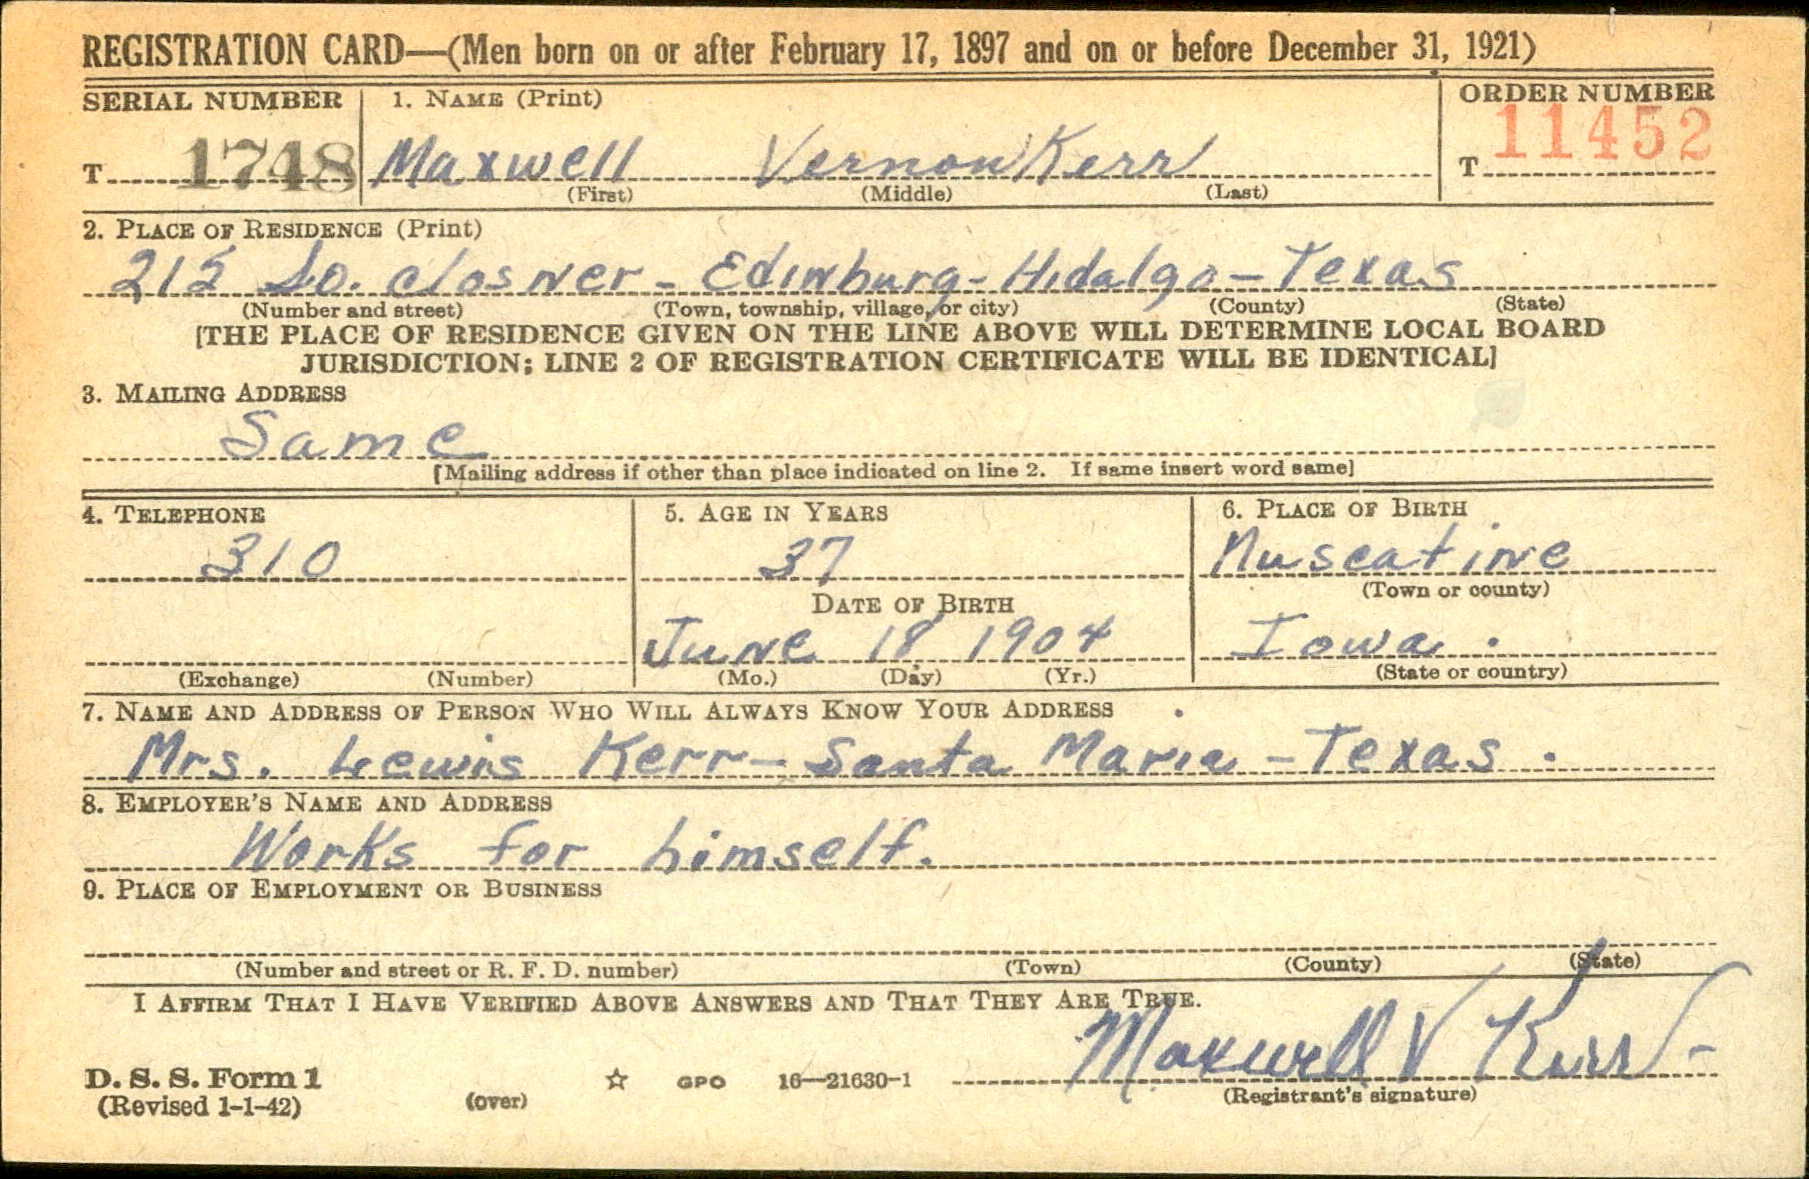 REGISTRATION CARD—(Men born on or after February 17, 1897 and on or before December 31, 1921)
SERIAL NUMBER 1. NAME (Print) ORDER NUMBER
T 1748 Maxwell Vernon Kerr T 11452
(First) (Middle) (Last)
2. PLACE OF RESIDENCE (Print)
212 So. Closner - Edinburg - Hidalgo - Texas
(Number and street) (Town, township, village, or city) (County) (State)
[THE PLACE OF RESIDENCE GIVEN ON THE LINE ABOVE WILL DETERMINE LOCAL BOARD
JURISDICTION; LINE 2 OF REGISTRATION CERTIFICATE WILL BE IDENTICAL]
3. MAILING ADDRESS
Same
[Mailing address if other than place indicated on line 2. If same insert word same]
4. TELEPHONE 5. AGE IN YEARS 6. PLACE OF BIRTH
310 37 Muscatine
(Town or county)
DATE OF BIRTH
June 18 1904 Iowa.
(Exchange) (Number) (Mo.) (Day) (Yr.) (State or country)
7. NAME AND ADDRESS OF PERSON WHO WILL ALWAYS KNOW YOUR ADDRESS
Mrs. Lewis Kerr - Santa Maria - Texas.
8. EMPLOYER'S NAME AND ADDRESS
Works for himself.
9. PLACE OF EMPLOYMENT OR BUSINESS
(Number and street or R. F. D. number) (Town) (County) (State)
I AFFIRM THAT I HAVE VERIFIED ABOVE ANSWERS AND THAT THEY ARE TRUE.
Maxwell V Kerr
D. S. S. Form 1 ☆ GPO 16—21630-1
(Revised 1-1-42) (over) (Registrant's signature)